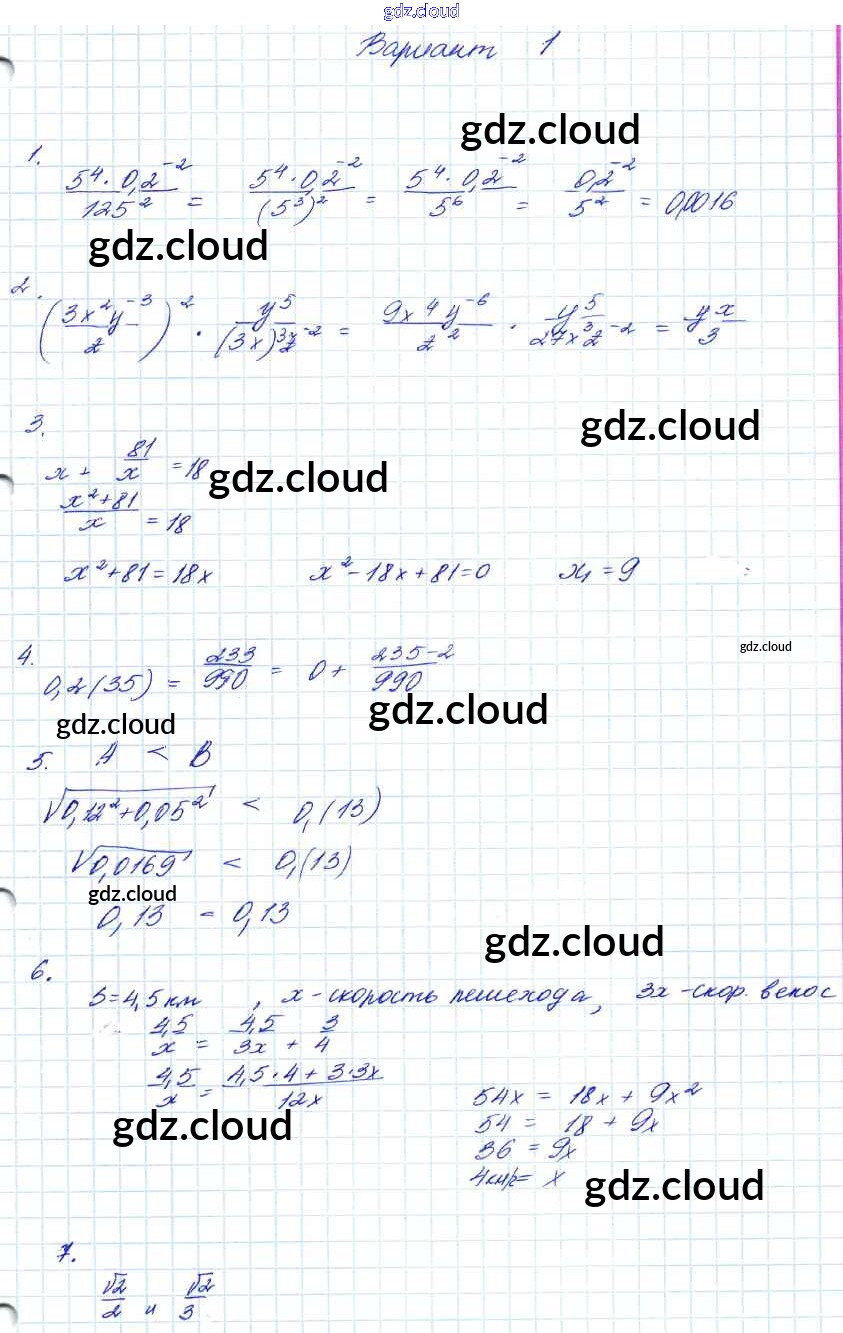 gdz.cloud
Вариант 1
gdz.cloud
1. (5⁴ · 0,2⁻²)/125² = (5⁴ · 0,2⁻²)/(5³)² = (5⁴ · 0,2⁻²)/5⁶ = 0,2⁻²/5² = 0,0016
gdz.cloud
2. (3x²y⁻³/z)² · y⁵/((3x)³z⁻²) = 9x⁴y⁻⁶/z² · y⁵/(27x³z⁻²) = y x/3
3.
gdz.cloud
x + 81/x = 18
gdz.cloud
(x²+81)/x = 18
x²+81=18x x²-18x+81=0 x₁ = 9
4.
gdz.cloud
0,2(35) = 233/990 = 0 + (235-2)/990
gdz.cloud
gdz.cloud
5. A < B
√(0,12²+0,05²) < 0,(13)
√0,0169 < 0,(13)
gdz.cloud
0,13 = 0,13
gdz.cloud
6.
S=4,5 км , x - скорость пешехода, 3x - скор. велос
4,5/x = 4,5/3x + 3/4
4,5/x = (4,5·4 + 3·3x)/12x
54x = 18x + 9x²
gdz.cloud
54 = 18 + 9x
36 = 9x
4км/ч = x
gdz.cloud
7.
√2/2 и √2/3